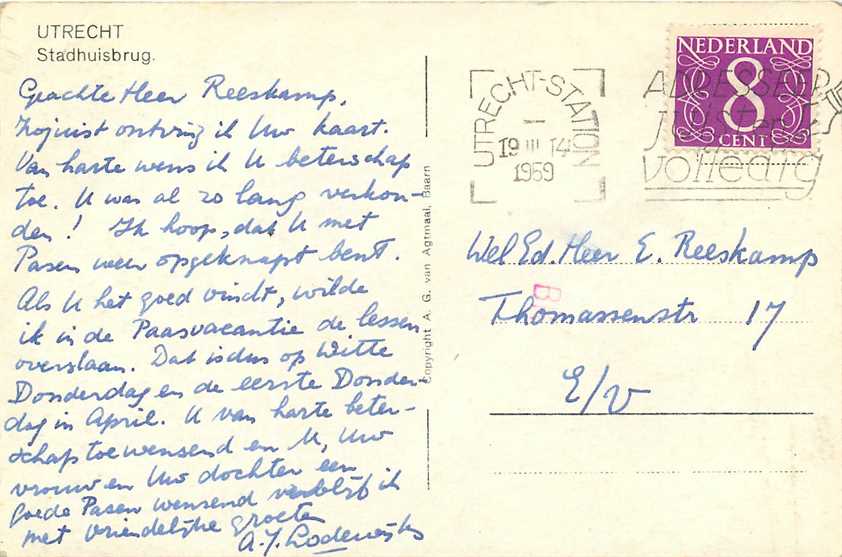 UTRECHT
Stadhuisbrug.
Geachte Heer Reeskamp,
Zojuist ontving ik Uw kaart.
Van harte wens ik U beterschap
toe. U was al zo lang verkou-
den! Ik hoop, dat U met
Pasen weer opgeknapt bent.
Als U het goed vindt, wilde
ik in de Paasvacantie de lessen
overslaan. Dat is dus op Witte
Donderdag en de eerste Donder-
dag in April. U van harte beter-
schap toewensend en U, Uw
vrouw en Uw dochter een
goede Pasen wensend verblijf ik
met vriendelijke groeten
A.J. Lodewijks
Copyright A. G. van Agtmaal, Baarn
UTRECHT-STATION
19 III 14
1959
NEDERLAND
8
CENT
ADRESSEER
JUIST en
volledig
Wel Ed. Heer E. Reeskamp
Thomassenstr 17
E/V
B